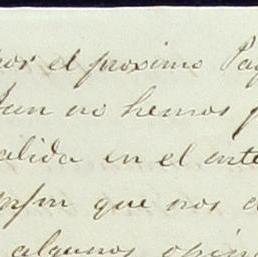 por el proximo Pa
aun no hemos
alida en el inte
que nos
algunos opin